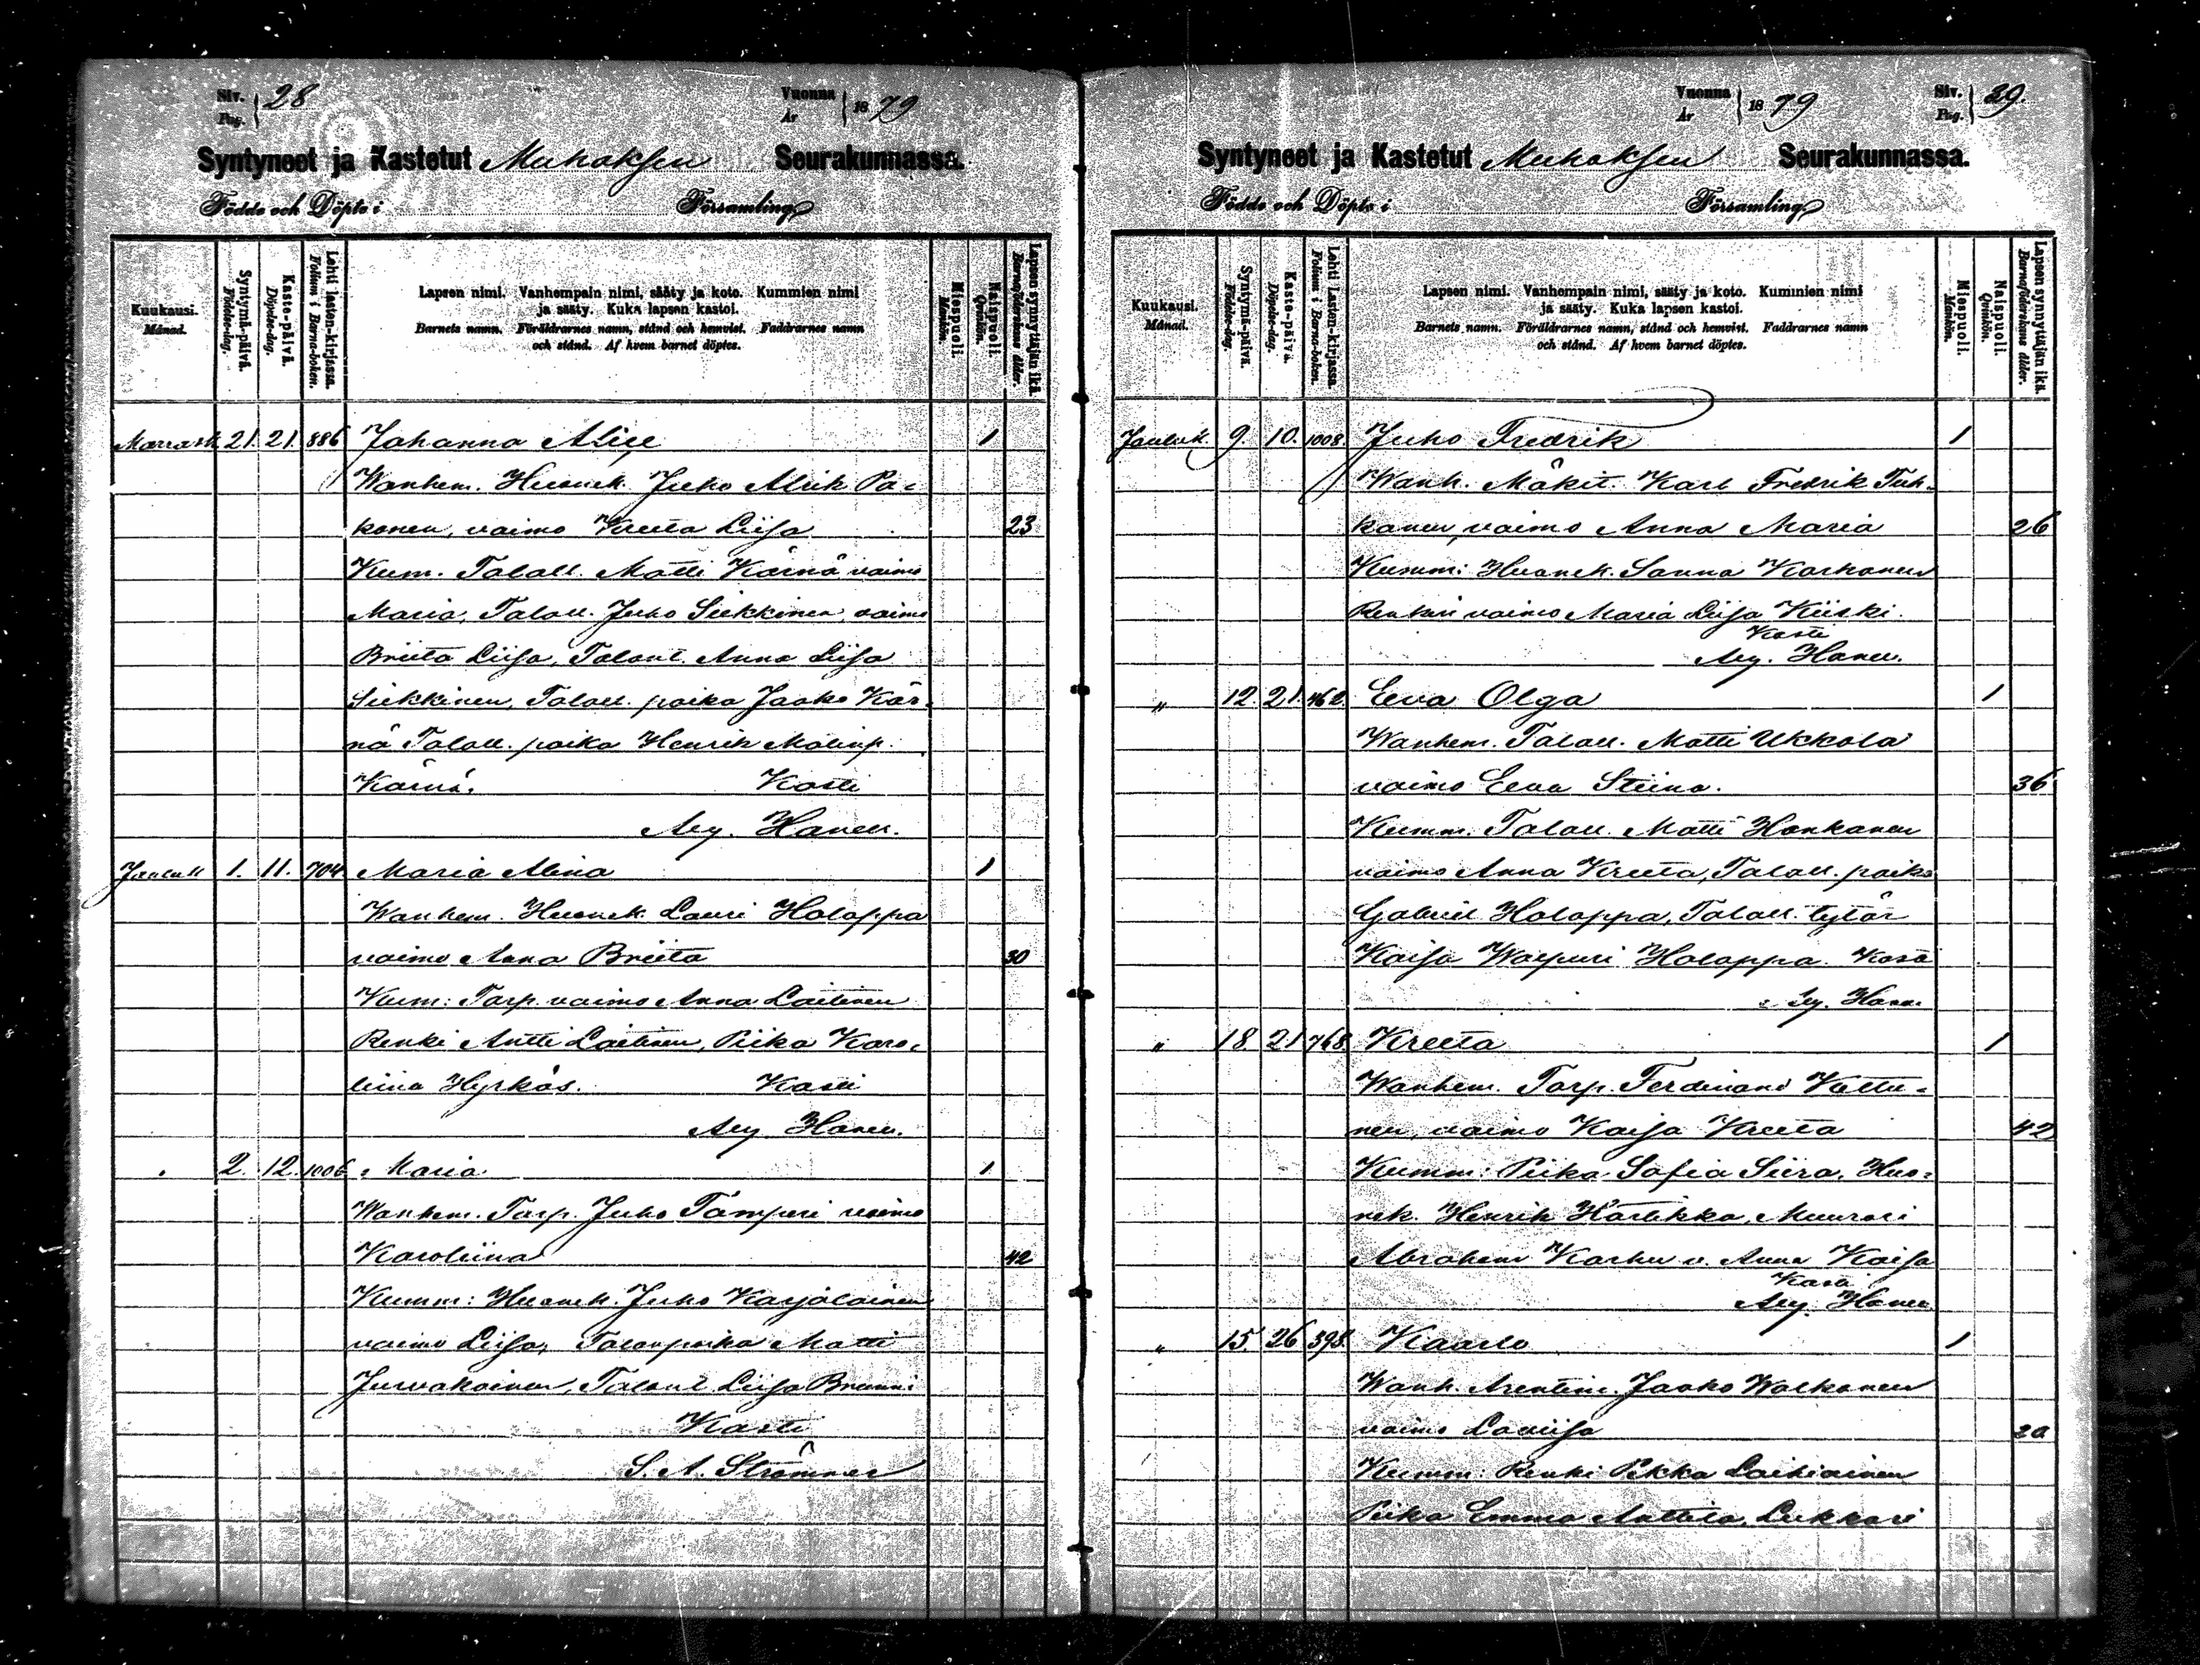 Siv. Pag. 28 Vuonna År 1879
Syntyneet ja Kastetut Muhoksen Seurakunnassa.
Födde och Döpte i Församling
Kuukausi. Månad.
Syntymä-päivä. Födelse-dag.
Kaste-päivä. Döpelse-dag.
Lehti lasten-kirjassa. Folium i Barna-boken.
Lapsen nimi. Vanhempain nimi, sääty ja koto. Kummien nimi
ja sääty. Kuka lapsen kastoi.
Barnets namn. Föräldrarnes namn, stånd och hemvist. Faddrarnes namn
och stånd. Af hvem barnet döptes.
Miespuoli. Mankön.
Naispuoli. Qvinkön.
Lapsen synnyttäjän ikä. Barnaföderskans ålder.
Marrask 21. 21. 886 Johanna Alice 1
Wanhem. Huonek. Juho Alrik Pa-
konen, vaimo Kreeta Liisa 23
Kum. Talall. Matti Kärnä vaimo
Maria, Talall. Juho Siekkinen, vaimo
Briita Liisa, Talont. Anna Liisa
Siekkinen, Talall. poika Jaako Kär-
nä Talall. poika Henrik Matinp.
Kärnä. Kasti
Aug. Hanell.
Jouluk 1. 11. 704 Maria Alina 1
Wanhem. Huonek. Lauri Holappa
vaimo Anna Briita 30
Kum: Torp. vaimo Anna Laitinen
Renki Antti Laitinen, Piika Karo-
liina Hyrkäs. Kasti
Aug. Hanell.
" 2. 12. 1006 Maria 1
Wanhem. Torp. Juho Tämperi vaimo
Karoliina 42
Kumm: Huonek. Juho Karjalainen
vaimo Liisa, Talonpoika Matti
Juvakainen, Talont Liisa Brunni
Kasti
S. A. Strömmer
Vuonna År 1879 Siv. Pag. 29.
Syntyneet ja Kastetut Muhoksen Seurakunnassa.
Födde och Döpte i Församling
Kuukausi. Månad.
Syntymä-päivä. Födelse-dag.
Kaste-päivä. Döpelse-dag.
Lehti Lasten-kirjassa. Folium i Barna-boken.
Lapsen nimi. Vanhempain nimi, sääty ja koto. Kummien nimi
ja sääty. Kuka lapsen kastoi.
Barnets namn. Föräldrarnes namn, stånd och hemvist. Faddrarnes namn
och stånd. Af hvem barnet döptes.
Miespuoli. Mankön.
Naispuoli. Qvinkön.
Lapsen synnyttäjän ikä. Barnaföderskans ålder.
Jouluk. 9. 10. 1008. Juho Fredrik 1
Wanh. Mäkit. Karl Fredrik Tuh-
kanen, vaimo Anna Maria 26
Kumm: Huonek. Sanna Karhanen
Renkin vaimo Maria Liisa Kiiski.
Kasti
Aug. Hanell.
" 12. 21. 462. Eeva Olga 1
Wanhem. Talall. Matti Ukkola
vaimo Eeva Stiina. 36
Kumm. Talall. Matti Honkanen
vaimo Anna Kreeta, Talall. poika
Gabriel Holappa, Talall. tytär
Kaisa Walpuri Holappa. Kasti
Aug. Hanell.
" 18. 21 768. Kreeta 1
Wanhem. Torp. Ferdinand Kottu-
nen, vaimo Kaisa Kreeta 42
Kumm: Piika Sofia Siira, Huo-
nek. Henrik Hartikka, Muurari
Abraham Karhu v. Anna Kaisa
Kasti
Aug. Hanell
" 15. 26 398. Kaarlo 1
Wanh. Arentim. Jaako Walkonen
vaimo Loviisa 20
Kumm: Renki Pekka Laihiainen
Piika Emma Anttila, Lukkari